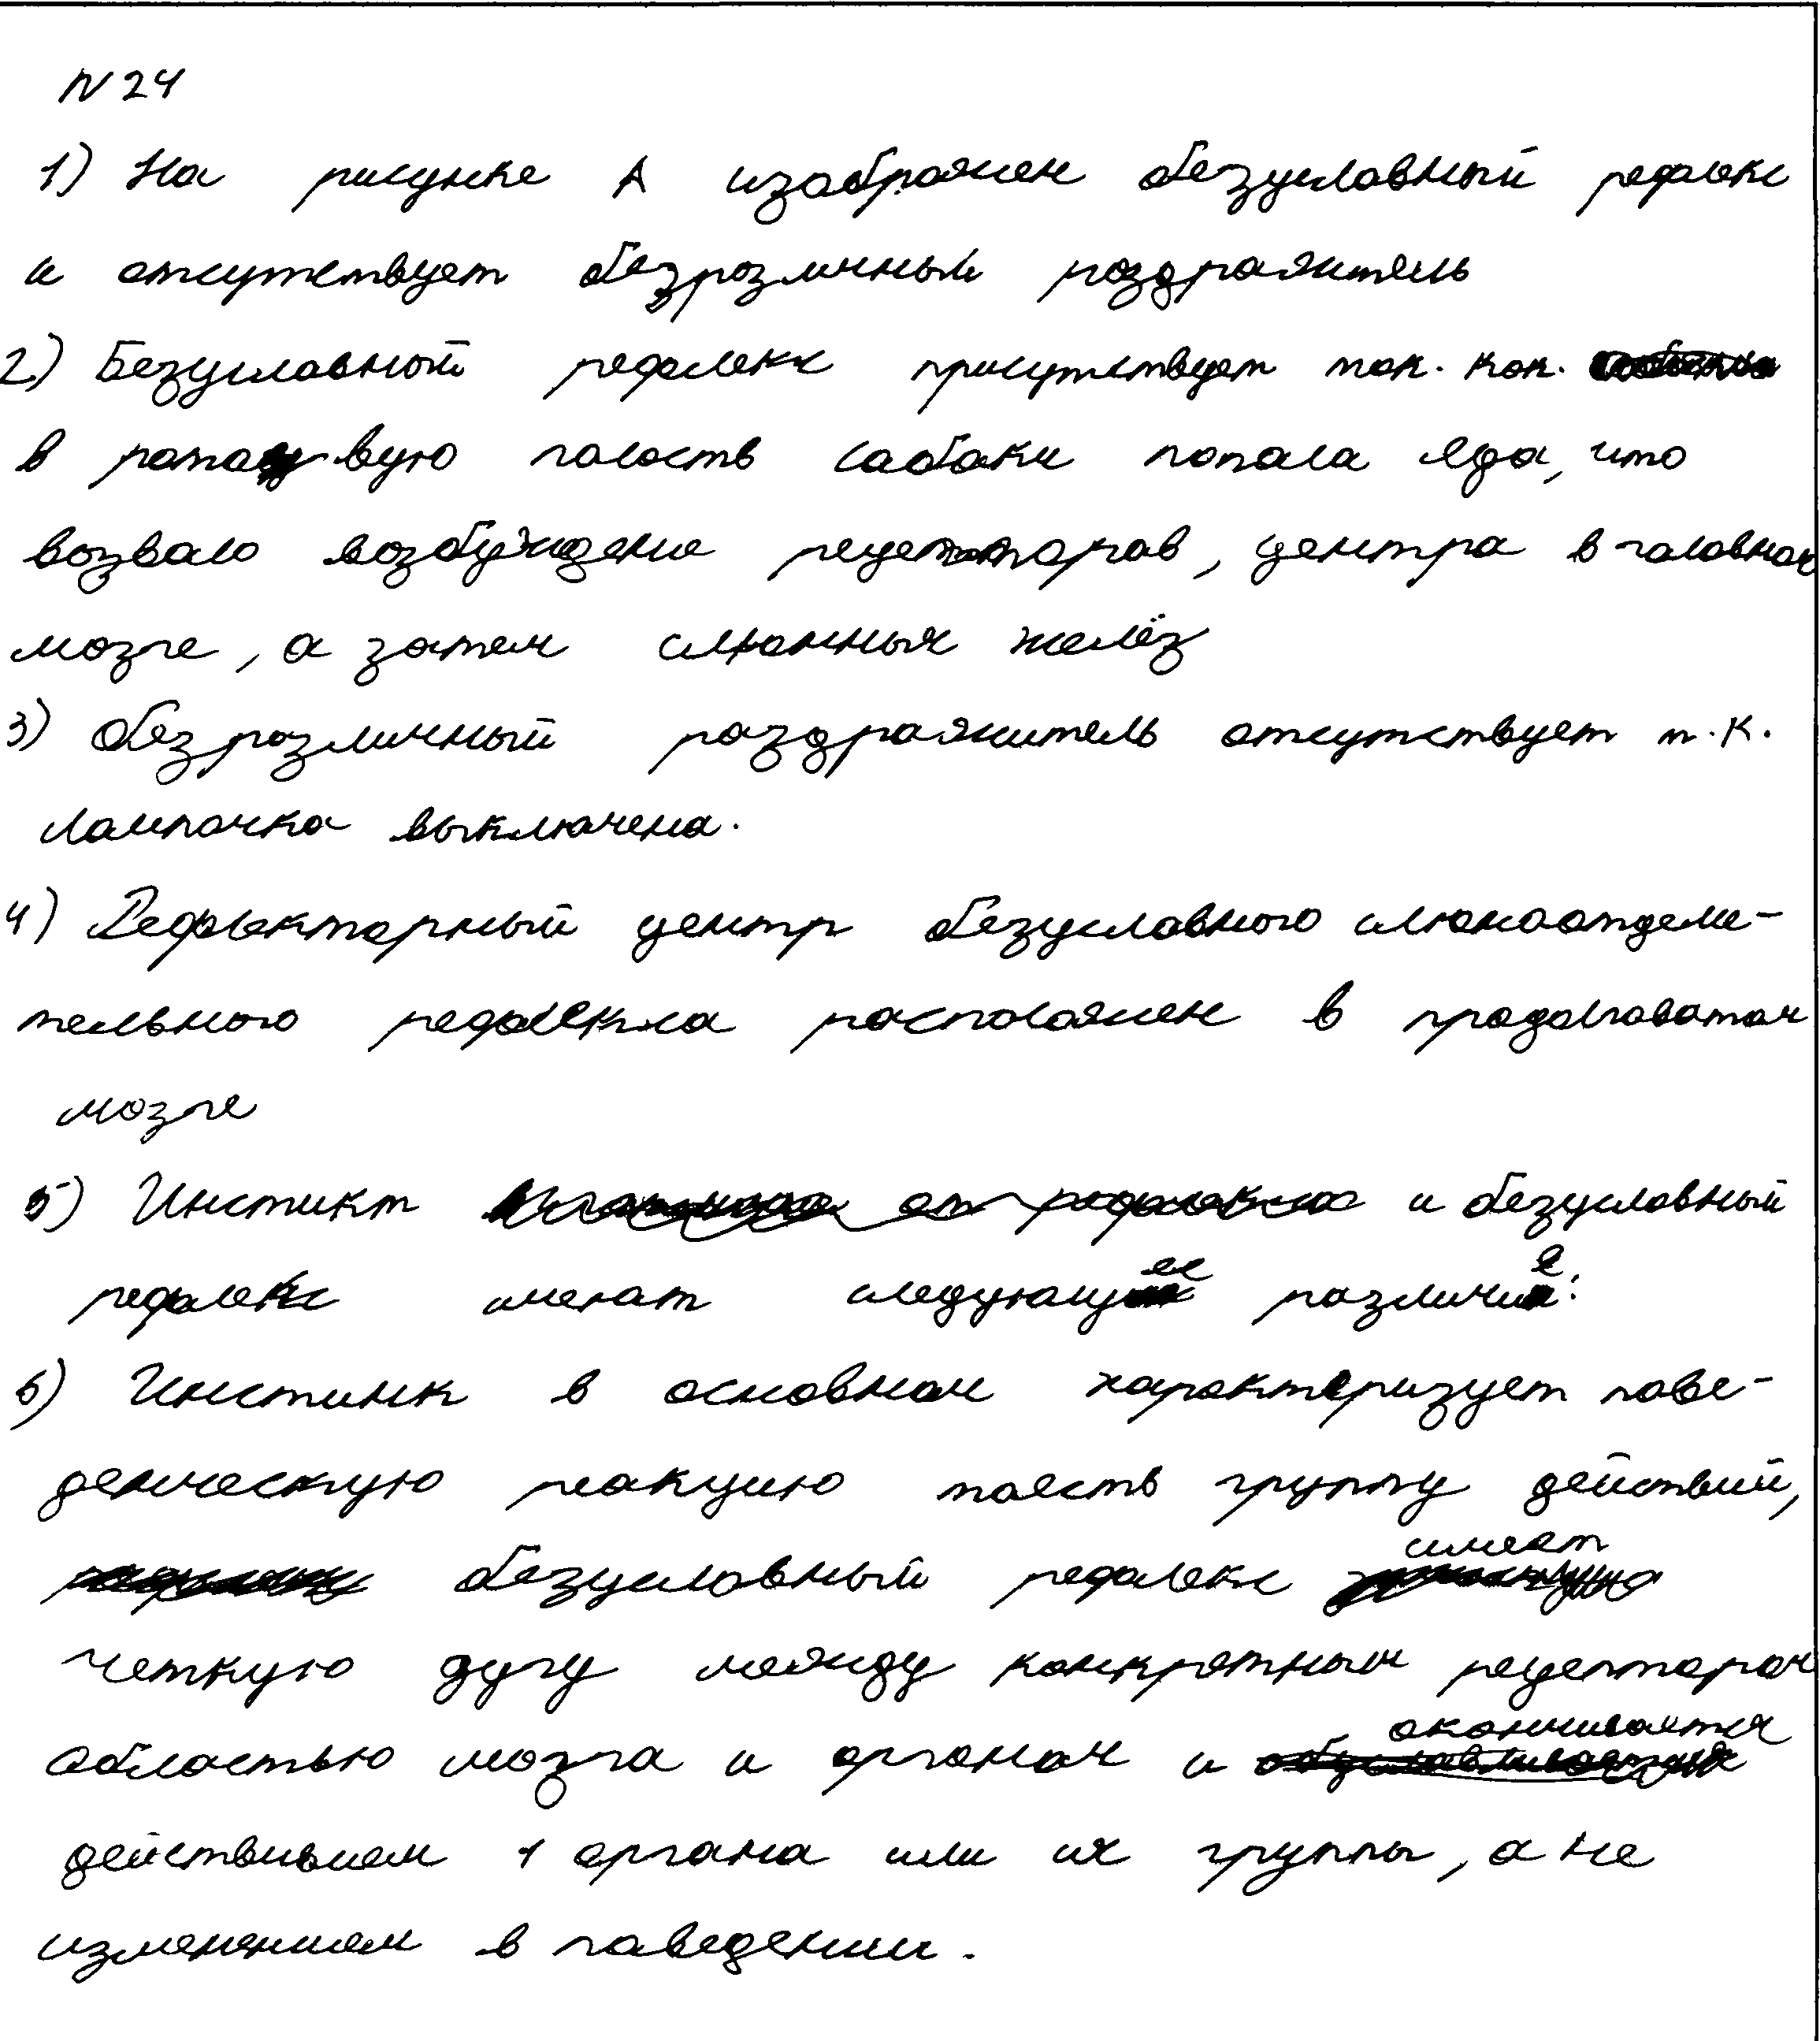 N 24
1) На рисунке А изображен безусловный рефлекс
и отсутствует безрозличный роздражитель
2) Безусловный рефлекс присутствует так. как.
в ротовую полость собаки попала еда, что
возвало возбуждение рецепторов, центра в головном
мозге, а затем слюнных желёз
3) безразличный раздражитель отсутствует т.к.
лампочка выключена.
4) Рефлекторный центр безусловного слюноотдели-
тельного рефлекса расположен в продолговатом
мозге
5) Инстикт и безусловный
рефлекс имеют следующие различие:
6) Инстинк в основном характеризует пове-
денческую реакцию тоесть группу действий,
безусловный рефлекс имеет
четкую дугу между конкретным рецептором
областью мозга и органом и оканчивается
действием 1 органа или их группы, а не
изменением в поведении.